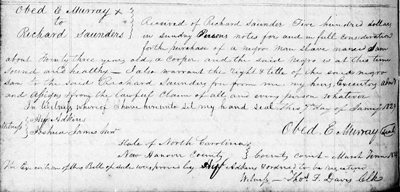 Obed E Murray &
to
Richard Saunders
Received of Richard Saunder Five hundred dollars
in sundry Persons notes for and in full consideration
for the purchase of a negro man slave named
about Forty three years old, a Cooper and the said negro is at this time
Sound and healthy – I also warrant the right & title of the said negro
to the said Richard Saunders from me, my heirs, Executors, Admrs
and assigns from the lawful Claim of all and every person whatever
In Witness whereof I have hereunto set my hand seal this 7 day of Jany 1829
Witness Hez Adkins
Joshua James Senr
Obed E Murray Seal
State of North Carolina
New Hanover County
County Court – March Term
The Execution of this Bill of sale was proven by Hez Adkins & ordered to be registered
Witness – Thos. F. Davis Clk